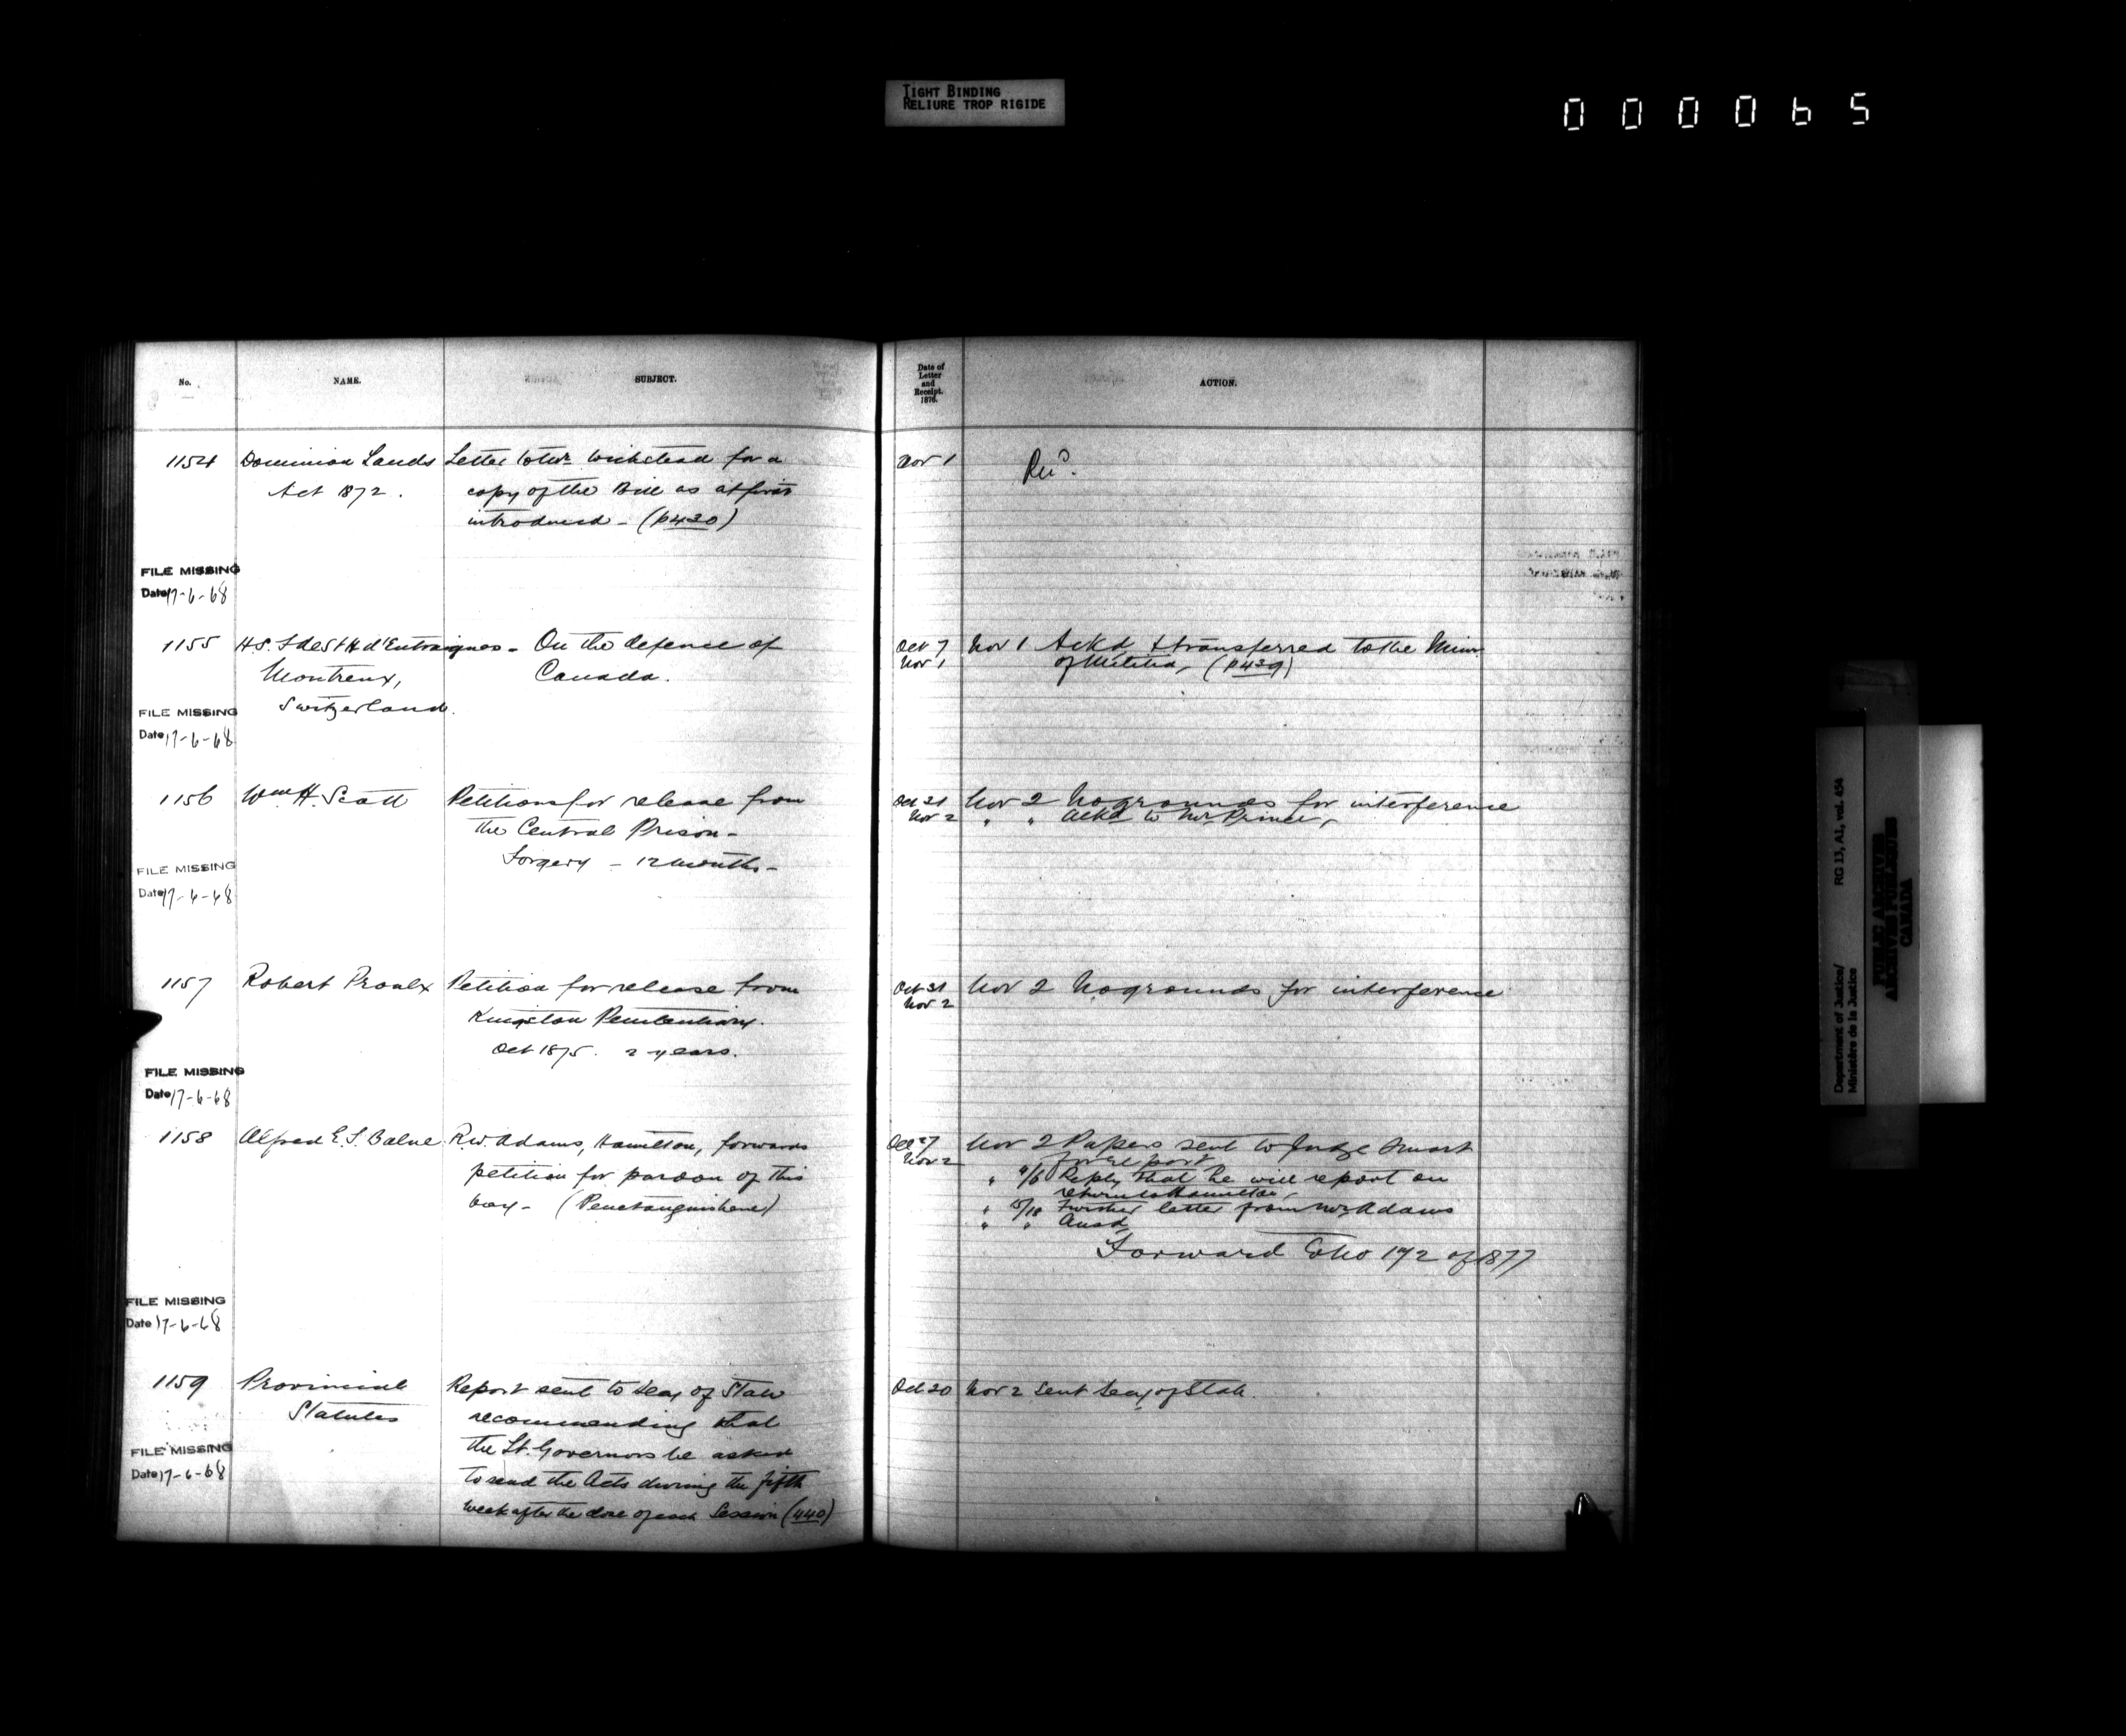 TIGHT BINDING
RELIURE TROP RIGIDE
000065
No.
NAME.
SUBJECT.
Date of
Letter
and
Receipt.
1876.
ACTION.
1154
Dominion Lands
Act 1872.
Letter to Mr Wicksteed for a
copy of the Bill as at first
introduced - (p430)
Nov 1
FILE MISSING
Date 17-6-68
1155
d'Entraigues -
Montreux,
Switzerland.
On the defence of
Canada.
Oct 7
Nov 1
Nov 1 Ackd & transferred to the Minr
of Militia, (p439)
FILE MISSING
Date 17-6-68
1156
Wm H. Scott
Petitions for release from
the Central Prison -
Forgery - 12 months -
Oct 31
Nov 2
Nov 2 No grounds for interference
" " Ackd to Mr Prince,
FILE MISSING
Date 17-6-68
1157
Robert Proulx
Petition for release from
Kingston Penitentiary.
Oct 1875. 2 years.
Oct 31
Nov 2
Nov 2 No grounds for interference
FILE MISSING
Date 17-6-68
1158
Alfred E. S.
R.W. Adams, Hamilton, forwards
petition for pardon of this
boy - (Penetanguishene)
Oct 27
Nov 2
Nov 2 Papers sent to Judge Smart
for report
" 4/6 Reply that he will report on
return to Hamilton,
" 15/18 Further letter from Mr Adams
" " Ansd
Forward to No 192 of 1877
FILE MISSING
Date 17-6-68
1159
Provincial
Statutes
Report sent to Secy of State
recommending that
the Lt. Governors be asked
to send the Acts during the fifth
week after the close of each Session (440)
Oct 20
Nov 2 Sent Secy of State.
FILE MISSING
Date 17-6-68
Department of Justice/
Ministère de la Justice
RG 13, A1, vol. 454
PUBLIC ARCHIVES
ARCHIVES PUBLIQUES
CANADA